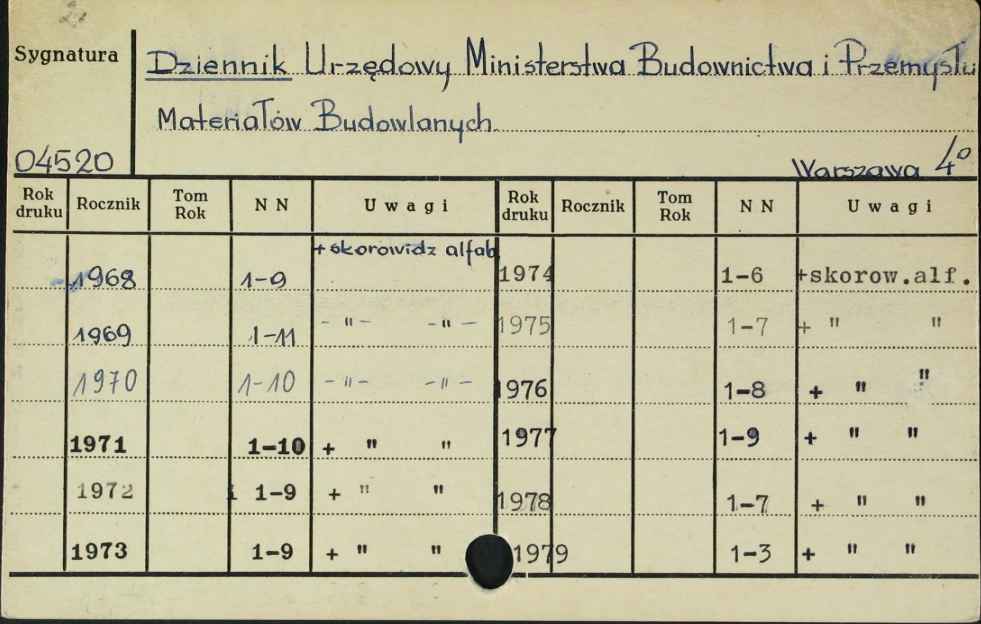 Sygnatura
Dziennik Urzędowy Ministerstwa Budownictwa i Przemysłu
Materiałów Budowlanych
04520
Warszawa 4°
Rok druku Rocznik Tom Rok NN Uwagi Rok druku Rocznik Tom Rok NN Uwagi
+skorowidz alfab
1968 1-9 1974 1-6 +skorow.alf.
1969 1-11 -"- -"- 1975 1-7 + " "
1970 1-10 -"- -"- 1976 1-8 + " "
1971 1-10 + " " 1977 1-9 + " "
1972 1-9 + " " 1978 1-7 + " "
1973 1-9 + " " 1979 1-3 + " "